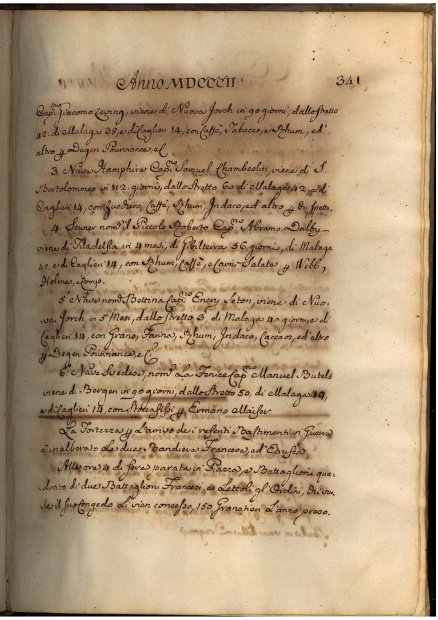 Anno MDCCCII 341
Cap.º Giacomo Leving, viene di Nuova Jorch in 90 giorni, dallo stretto
42. di Malaga 38, e di Caglieri 14, con Caffè, Tabacco, e Rhum, ed
altro p Degen
3. Nave Hamphire Cap.º Samuel Chambeslin, viene di S.
Bartolomneo in 112. giorni, dallo Stretto 60 di Malaga 42, e di
Caglieri 14, con Zucchero, Caffè, Rhum, Indaco, ed altro p
4. Scuner nom.º il Piccolo Roberto Cap.no Abramo Dolby
viene di Filadelfia in 4 mesi, di Gibilterra 56 giorni, di Malaga
40, e di Caglieri 14, con Rhum, Caffè, e Carni Salate p Webb,
Holmes, e Comp.
5.ª Nave nom.ª Bettina Cap.no Enery Seton, viene di Nuo-
va Jorch, in 5 Mesi, dallo Stretto 3, di Malaga 40 giorni, e di
Caglieri 14, con Grano, Farina, Rhum, Indaco, Caccao, ed altro
p Degen
6.ª Nave Svedese, nom.ª La Fenice Cap.º Manuel Butels
viene di Bergen in 90 giorni, dallo Stretto 50, di Malaga 42,
e di Caglieri 14, con p Ermano
La Fortezza p L'arrivo dei Bastimenti in Guerra
à inalberato Le due Bandiera Francese, ed
Alle ore 4 di sera parata in Piazza, e Battaglione qua-
drato di due Battaglioni Francesi, e Lettoli gl' Ordini,
il suo Congedo Li vien concesso, 150 Granatieri L'anno